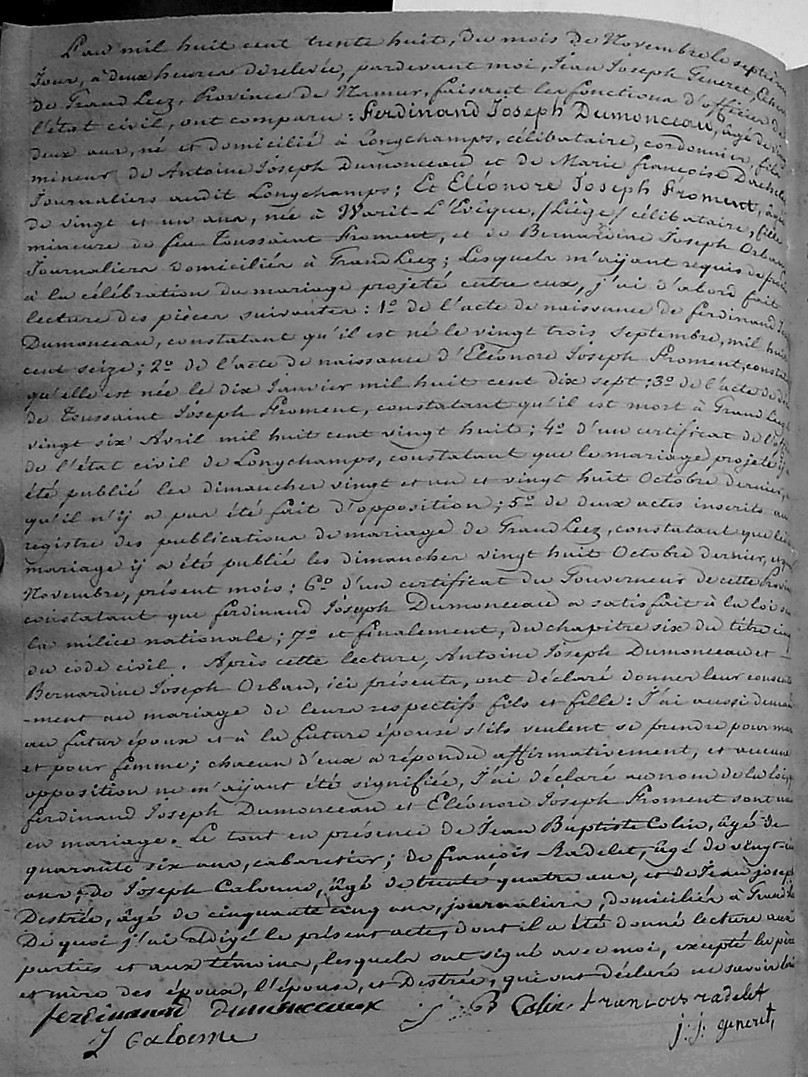 L'an mil huit cent trente huit, du mois de Novembre le septième
Jour, à deux heures de relevée, pardevant moi, Jean Joseph Generet,
de Grand Leez, Province de Namur, faisant les fonctions d'officier de
l'état civil, ont comparu : Ferdinand Joseph Dumonceau, âgé de vingt
deux ans, né et domicilié à Longchamps, célibataire, cordonnier, fils
mineur de Antoine Joseph Dumonceau et de Marie françoise
Journaliers audit Longchamps ; Et Eléonore Joseph Froment, âgée
de vingt et un ans, née à Warit-L'Evêque, /Liège/ célibataire, fille
mineure de feu Toussaint Froment, et de Bernardine Joseph Orban
Journaliers domiciliés à Grand Leez ; Lesquels m'aijant requis de
à la célébration du mariage projeté entre eux, j'ai d'abord fait
lecture des pièces suivantes : 1º de l'acte de naissance de ferdinand
Dumonceau, constatant qu'il est né le vingt trois Septembre, mil huit
cent seize ; 2º de l'acte de naissance d'Eléonore Joseph Froment,
qu'elle est née le dix Janvier mil huit cent dix sept ; 3º de l'acte de
de Toussaint Joseph Froment, constatant qu'il est mort à Grand Leez
vingt six Avril mil huit cent vingt huit ; 4º d'un certificat de
de l'état civil de Longchamps, constatant que le mariage projeté
été publié les dimanches vingt et un et vingt huit Octobre dernier,
qu'il n'ij a pas été fait d'opposition ; 5º de deux actes inscrits au
registre des publications de mariage de Grand Leez, constatant que
mariage ij a été publié les dimanches vingt huit Octobre dernier,
Novembre, présent mois ; 6º d'un certificat du Gouverneur de cette
constatant que ferdinand Joseph Dumonceau a satisfait à la loi
la milice nationale ; 7º et finalement, du chapitre six du titre cinq
du code civil. Après cette lecture, Antoine Joseph Dumonceau et
Bernardine Joseph Orban, ici présents, ont déclaré donner leur consente
-ment au mariage de leurs respectifs fils et fille : J'ai aussi
au futur époux et à la future épouse s'ils veulent se prendre pour
et pour femme ; chacun d'eux a répondu affirmativement, et aucune
opposition ne m'aijant été signifiée, J'ai déclaré au nom de la loi
ferdinand Joseph Dumonceau et Eléonore Joseph Froment sont
en mariage. Le tout en présence de Jean Baptiste Colin, âgé de
quarante six ans, cabaretier ; de françois Radelet, âgé de vingt
ans ; de Joseph Calonne, âgé de trente quatre ans, et de Jean joseph
Destrée, âgé de cinquante cinq ans, journaliers, domiciliés à Grand
De quoi j'ai rédigé le présent acte, dont il a été donné lecture aux
parties et aux témoins, lesquels ont signé avec moi, excepté les père
et mère des époux, l'épouse, et Destrée, qui ont déclaré ne savoir
ferdinand dumonceaux J B Colin françois radelet
J Calonne j. j. generet